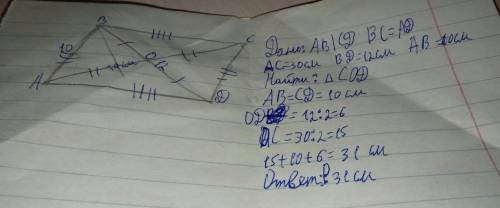 B
C
10
O
12
30см
A
D
Дано: AB||CD BC=AD
AC=30см BD=12см AB=10см
Найти: △COD
AB=CD=10см
OD = 12:2=6
OC=30:2=15
15+10+6=31см
Ответ: P 31см